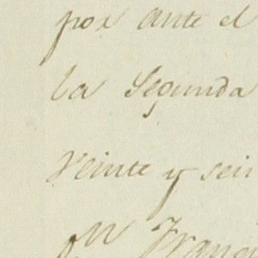 por ante el
la Segunda
Veinte y seis